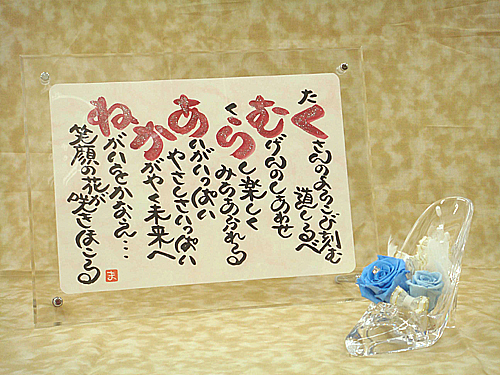 たくさんのよろこび刻む
道しるべ
むげんのしあわせ
くらし楽しく
みちあふれる
あいがいっぱい
やさしさいっぱい
かがやく未来へ
ねがいをかなえ…
笑顔の花が咲きほこる
ま